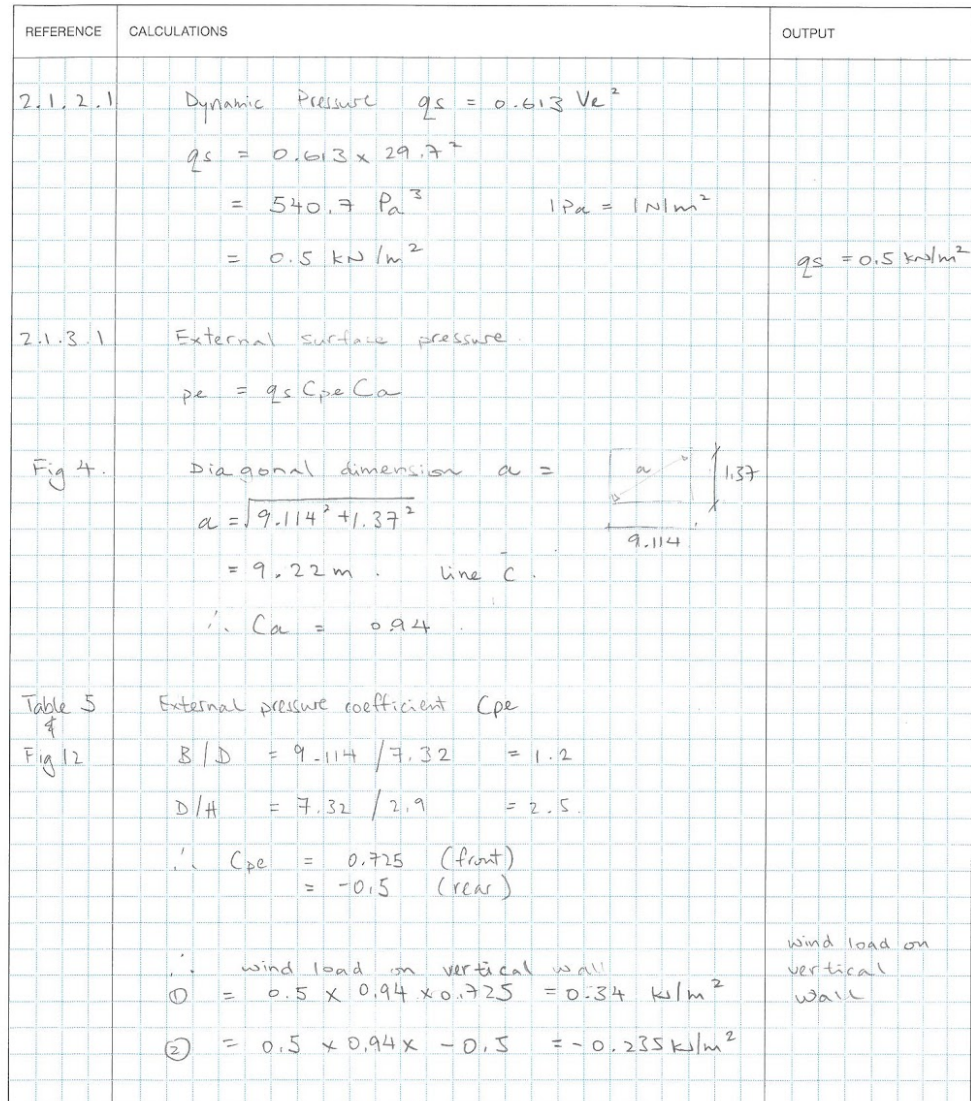 REFERENCE CALCULATIONS OUTPUT
2.1.2.1 Dynamic Pressure qs = 0.613 Ve²
qs = 0.613 x 29.7²
= 540.7 Pa³ 1Pa = 1N/m²
= 0.5 kN/m² qs = 0.5 kN/m²
2.1.3.1 External surface pressure.
pe = qs Cpe Ca
Fig 4. Diagonal dimension a = a 1.37
a = √9.114² + 1.37²
9.114
= 9.22m. line C.
∴ Ca = 0.94.
Table 5 External pressure coefficient Cpe
&
Fig 12 B/D = 9.114 / 7.32 = 1.2
D/H = 7.32 / 2.9 = 2.5.
∴ Cpe = 0.725 (front)
= -0.5 (rear)
wind load on
∴ wind load on vertical wall vertical
① = 0.5 x 0.94 x 0.725 = 0.34 kN/m² wall
② = 0.5 x 0.94 x -0.5 = -0.235 kN/m²